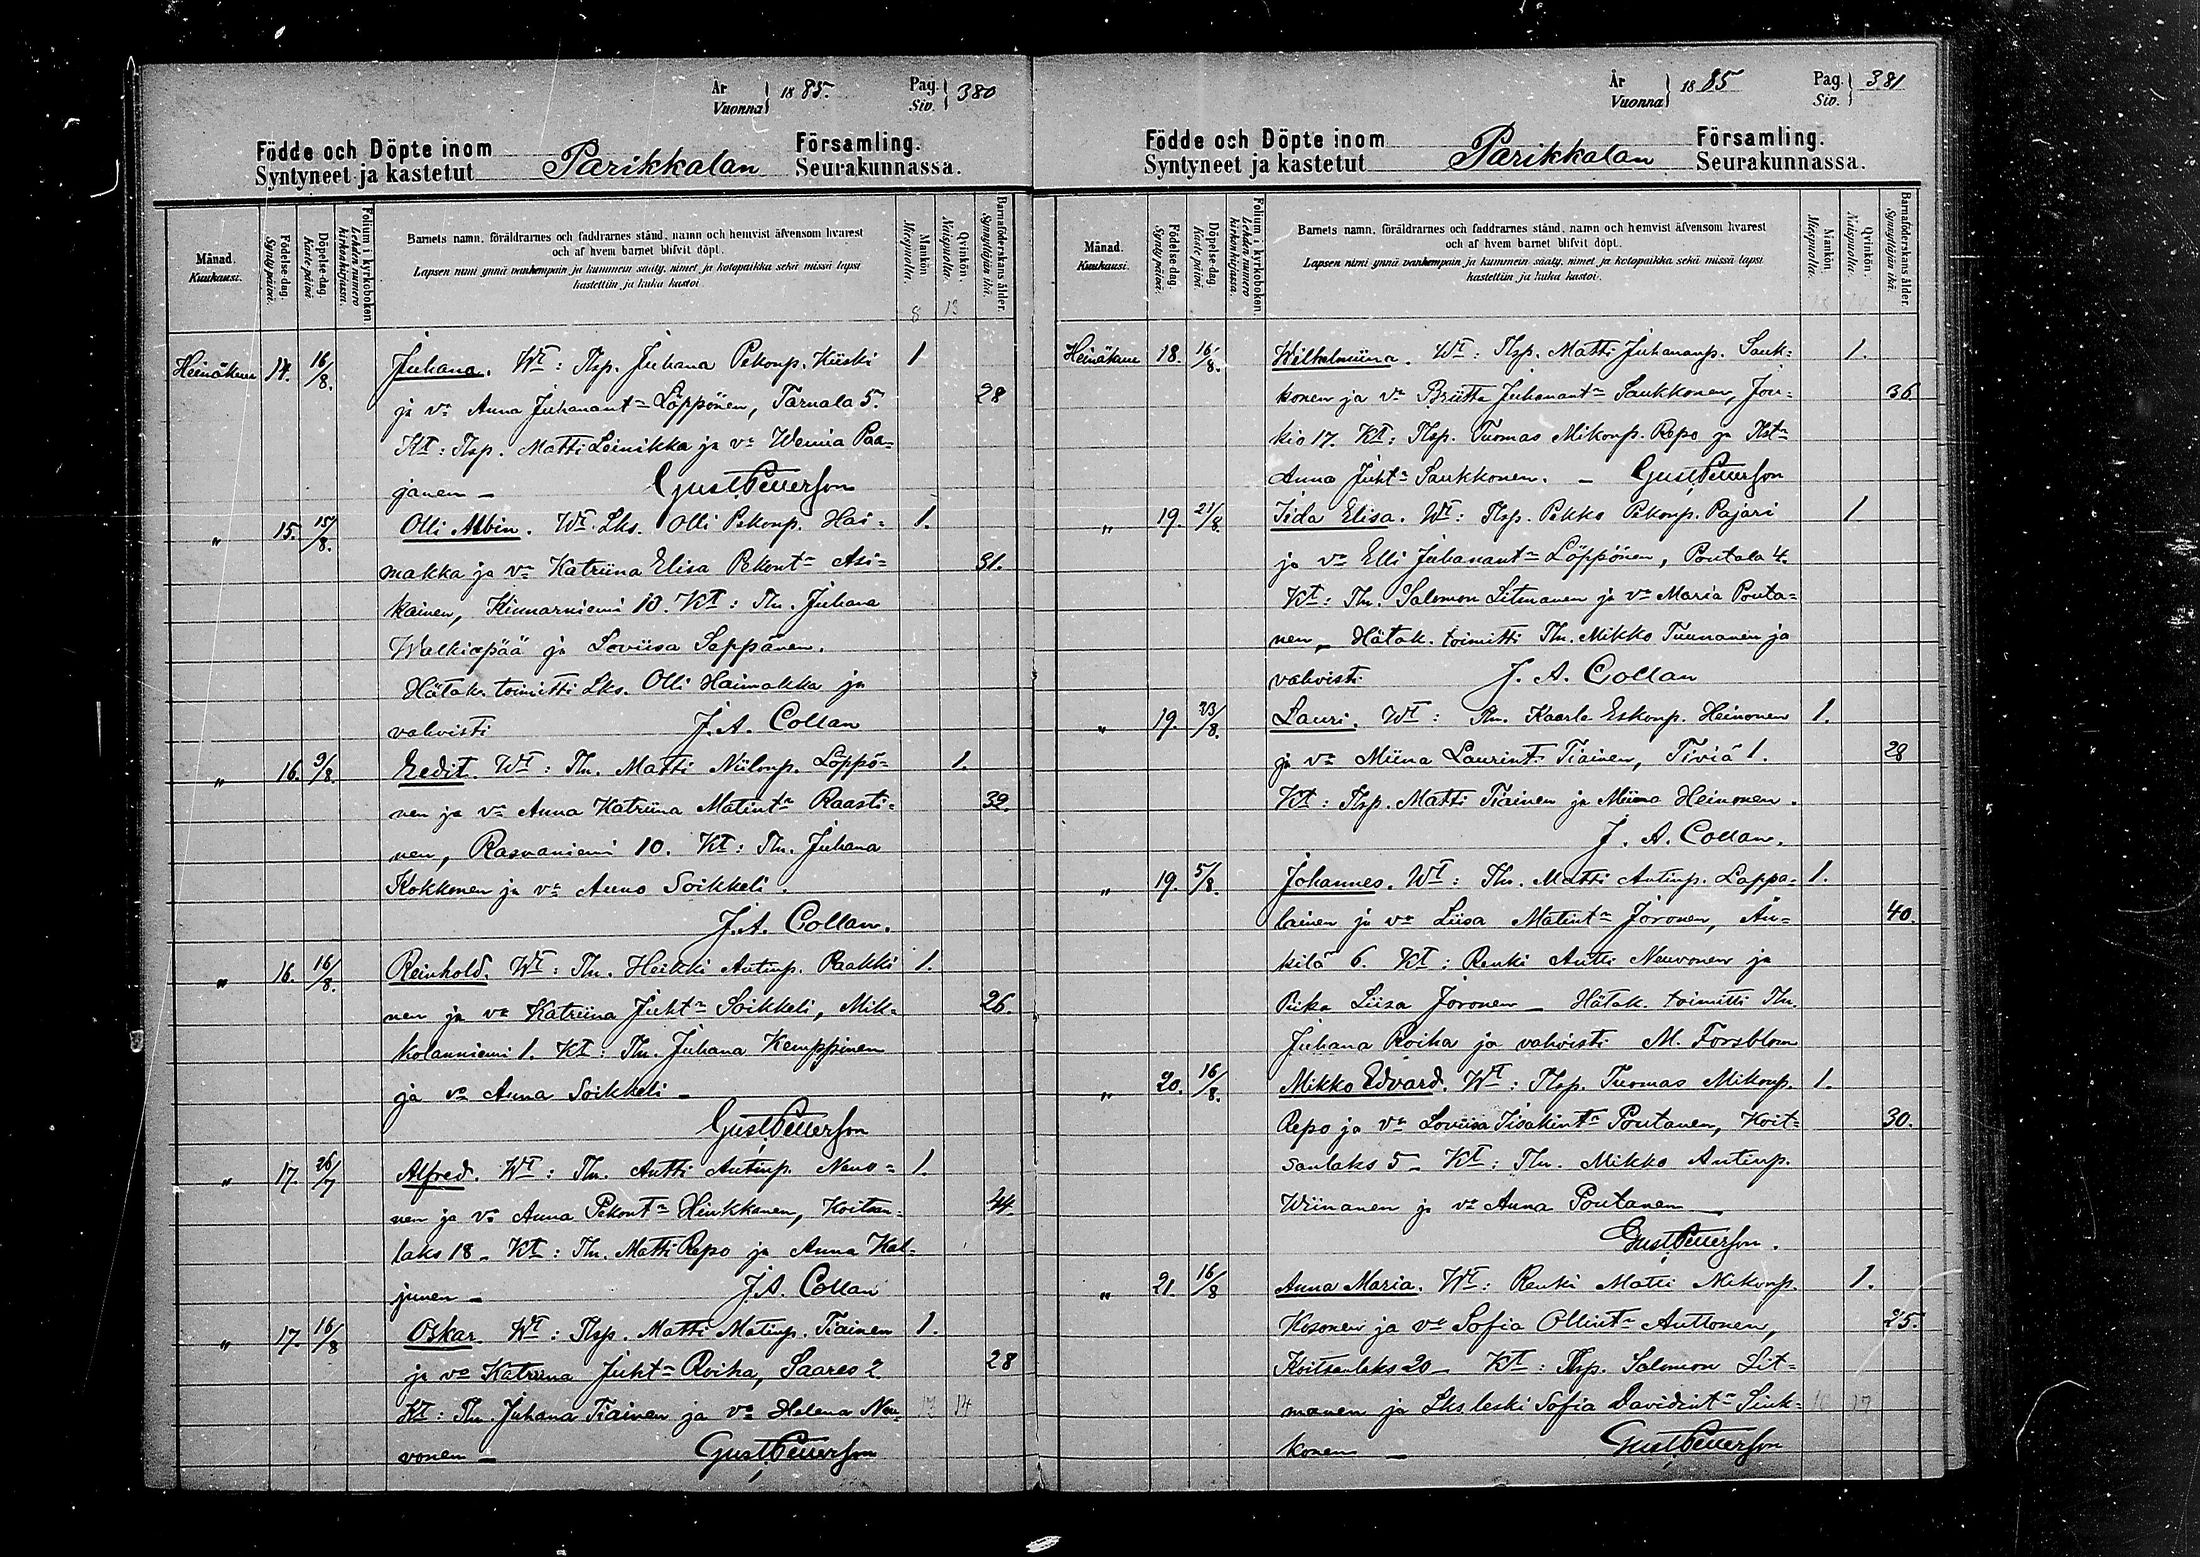 År Vuonna } 1885. Pag. Siv. } 380
Födde och Döpte inom Parikkalan Församling.
Syntyneet ja kastetut Seurakunnassa.
Månad. Kuukausi.
Födelse-dag. Syntypäivä.
Döpelse-dag. Kastepäivä.
Folium i kyrkoboken. Lehden numero kirkonkirjassa.
Barnets namn, föräldrarnes och faddrarnes stånd, namn och hemvist äfvensom hvarest
och af hvem barnet blifvit döpt.
Lapsen nimi ynnä vanhempain ja kummein sääty, nimet ja kotopaikka sekä missä lapsi
kastettiin ja kuka kastoi.
Mankön. Miespuolia.
Qvinkön. Naispuolia.
Barnaföderskans ålder. Synnyttäjän ikä.
8 13
Heinäkuu 14. 16/8. Juhana. Wt: Tlsp. Juhana Pekonp. Kiiski 1
ja vo Anna Juhanantr Löppönen, Tarnala 5. 28
Kt: Tlsp. Matti Leinikka ja vo Wenna Paa-
janen — Gust. Petterson
" 15. 15/8. Olli Albin. Wt. Lks. Olli Pekonp. Hai- 1.
makka ja vo Katriina Elisa Pekontr Asi- 31.
kainen, Kinnarniemi 10. Kt: Tln. Juhana
Walkiapää ja Loviisa Sappanen.
Hätäk. toimitti Lks. Olli Haimakka ja
vahvisti J. A. Collan
" 16. 9/8. Eedit. Wt: Tln. Matti Niilonp. Löppö- 1.
nen ja vo Anna Katriina Matintr Raasti- 39.
nen, Rasvaniemi 10. Kt: Tln. Juhana
Kokkonen ja vo Anna Soikkeli.
J. A. Collan.
" 16. 16/8. Reinhold. Wt: Tln. Heikki Antinp. Raakki 1.
nen ja vo Katriina Juhtr Soikkeli, Mik- 26.
kolanniemi 1. Kt: Tln. Juhana Kemppinen
ja vo Anna Soikkeli —
Gust. Petterson
" 17. 26/7 Alfred. Wt: Tln. Antti Antinp. Neuvo- 1.
nen ja vo Anna Pekontr Hinkkanen, Koitsan- 44.
laks 18 — Kt: Tln. Matti Repo ja Anna Kal-
junen — J. A. Collan
" 17. 16/8 Oskar. Wt: Tlsp. Matti Matinp. Tiainen 1.
ja vo Katriina Juhtr Roiha, Saares 2 28
Kt: Tln. Juhana Tiainen ja vo Helena Neu- 14
vonen — Gust. Petterson
År Vuonna } 1885 Pag. Siv. } 381
Födde och Döpte inom Parikkalan Församling.
Syntyneet ja kastetut Seurakunnassa.
Månad. Kuukausi.
Födelse-dag. Syntypäivä.
Döpelse-dag. Kastepäivä.
Folium i kyrkoboken. Lehden numero kirkonkirjassa.
Barnets namn, föräldrarnes och faddrarnes stånd, namn och hemvist äfvensom hvarest
och af hvem barnet blifvit döpt.
Lapsen nimi ynnä vanhempain ja kummein sääty, nimet ja kotopaikka sekä missä lapsi
kastettiin ja kuka kastoi.
Mankön. Miespuolia.
Qvinkön. Naispuolia.
Barnaföderskans ålder. Synnyttäjän ikä.
Heinäkuu 18. 16/8. Wilhelmiina. Wt: Tlsp. Matti Juhananp. Sauk- 1.
konen ja vo Briitta Juhanantr Saukkonen, Jou- 36
kio 17. Kt: Tlsp. Tuomas Mikonp. Repo ja Tlstr
Anna Juhtr Saukkonen. — Gust. Petterson
" 19. 21/8. Iida Elisa. Wt: Tlsp. Pekko Pekonp. Pajari 1.
ja vo Elli Juhanantr Löppönen, Poutala 4.
Kt: Tln. Salomon Litmanen ja vo Maria Pouta-
nen — Hätäk. toimitti Tln. Mikko Tuunanen ja
vahvisti J. A. Collan
" 19. 23/8. Lauri. Wt: Tln. Kaarle Eskonp. Heinonen 1.
ja vo Miina Laurintr Tiainen, Tiviä 1. 28
Kt: Tlsp. Matti Tiainen ja Miina Heinonen.
J. A. Collan.
" 19. 5/8. Johannes. Wt: Tln. Matti Antinp. Lappa- 1.
lainen ja vo Liisa Matintr Joronen, Än- 40.
kilä 6. Kt: Renki Antti Neuvonen ja
Piika Liisa Joronen — Hätäk. toimitti Tln.
Juhana Roiha ja vahvisti M. Forsblom
" 20. 16/8. Mikko Edvard. Wt: Tlsp. Tuomas Mikonp. 1.
Repo ja vo Loviisa Iisakintr Poutanen, Koit- 30.
sanlaks 5 — Kt: Tln. Mikko Antinp.
Wiinanen ja vo Anna Poutanen —
Gust. Petterson.
" 21 16/8 Anna Maria. Wt: Renki Matti Mikonp. 1.
Kosonen ja vo Sofia Ollintr Auttonen, 25.
Koitsanlaks 20 — Kt: Tlsp. Salomon Lit-
manen ja Lks leski Sofia Davidintr Sink-
konen — Gust. Petterson